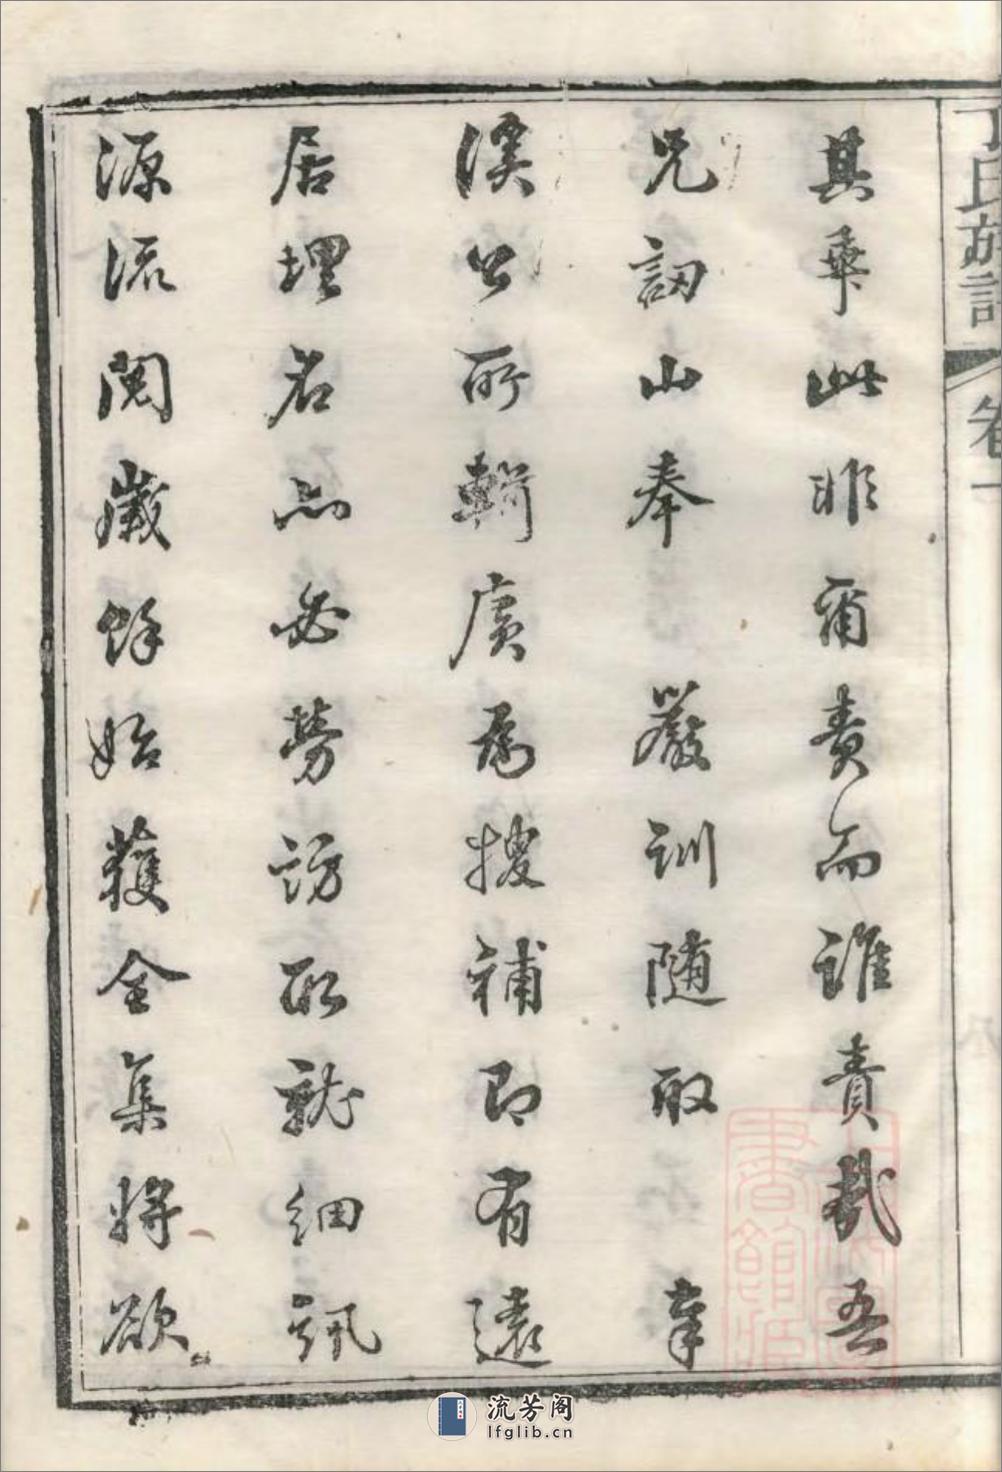 丁氏族譜 卷一
其乘此非爾責而誰責哉吾
兄訒山奉 嚴訓随取
溪公所輯廣為搜補即有遠
居埋名亦必勞訪取就細訊
源流閱歲餘始獲全集將欲
流芳阁
lfglib.cn